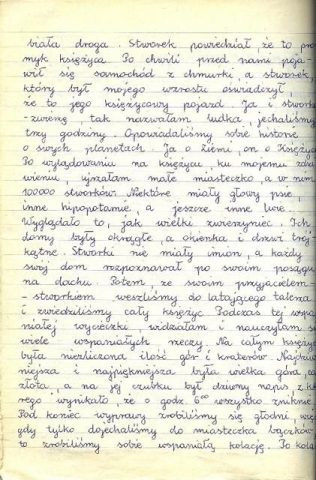 biała droga. Stworek powiedział, że to pro
myk księżyca. Po chwili przed nami poja-
wił się samochód z chmurki, a stworek,
który był mojego wzrostu oświadczył,
że to jego księżycowy pojazd. Ja i stworko-
-zwierzę, tak nazwałam ludka, jechaliśmy
trzy godziny. Opowiadaliśmy sobie historie
o swych planetach. Ja o Ziemi, on o Księżyc
Po wylądowaniu na księżycu, ku mojemu zdzi
wieniu, ujrzałam małe miasteczko, a w nim
100000 stworków. Niektóre miały głowy psie,
inne hipopotamie, a jeszcze inne lwie.
Wyglądało to, jak wielki zwierzyniec. Ich
domy były okrągłe, a okienka i drzwi trój
kątne. Stworki nie miały imion, a każdy
swój dom rozpoznawał po swoim posągu
na dachu. Potem, ze swoim przyjacielem-
-stworkiem weszliśmy do latającego talerza
i zwiedzaliśmy cały księżyc. Podczas tej wspa
niałej wycieczki widziałam i nauczyłam się
wiele wspaniałych rzeczy. Na całym księżyc
była niezliczona ilość gór i kraterów. Najdziw
niejsza i najpiękniejsza była wielka góra, ca
złota, a na jej czubku był dziwny napis z któ
rego wynikało, że o godz. 6⁰⁰ wszystko zniknie.
Pod koniec wyprawy zrobiliśmy się głodni, więc
gdy tylko dojechaliśmy do miasteczka bączków
to zrobiliśmy sobie wspaniałą kolację. Po kola